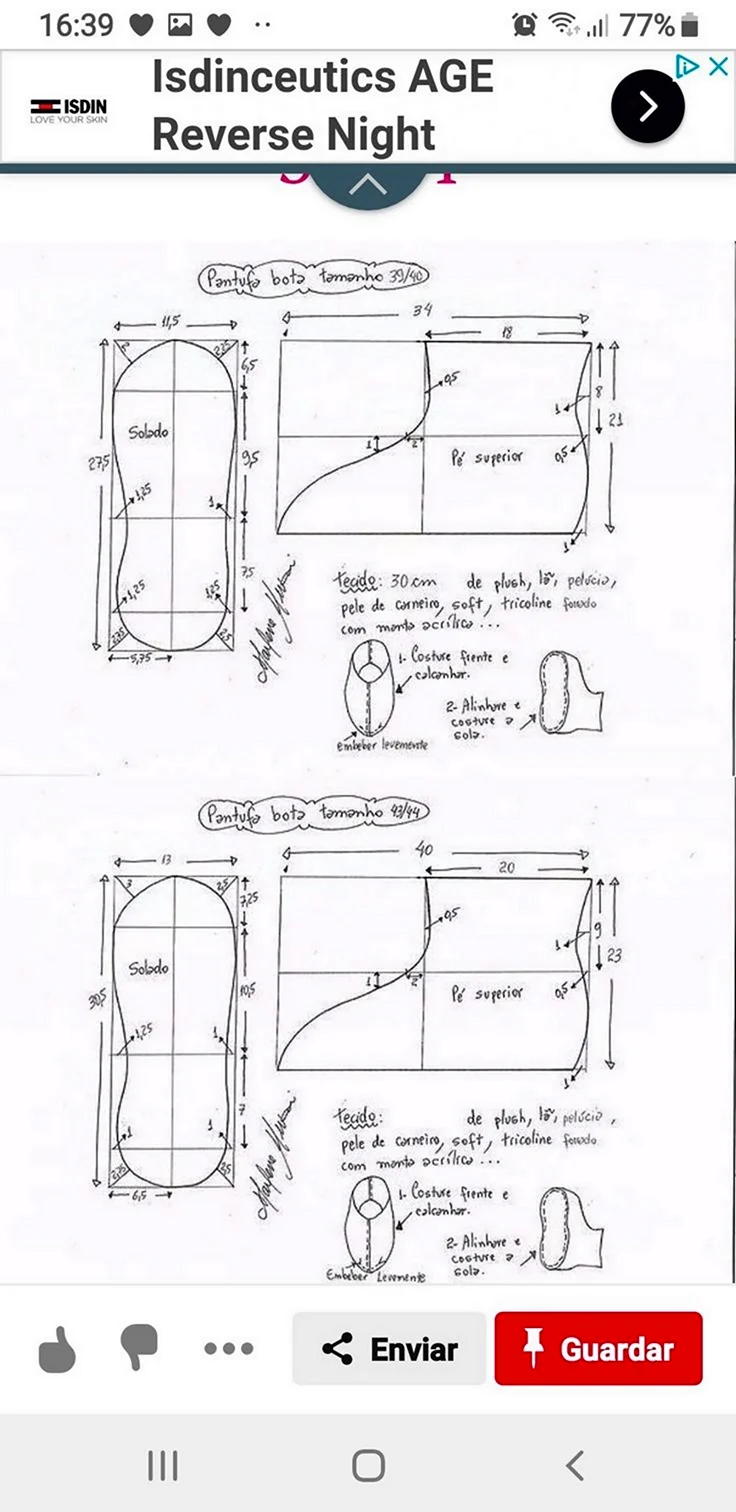 16:39
77%
ISDIN
LOVE YOUR SKIN
Isdinceutics AGE
Reverse Night
Pantufa bota tamanho 39/40
11,5
34
18
2
2,25
6,5
0,5
8
1
21
Solado
1
2
Pé superior
0,5
27,5
9,5
1,25
1
1
7,5
1,25
1,25
2,75
2,5
5,75
Marlene Mukai
Tecido: 30 cm de plush, lã, pelúcia,
pele de carneiro, soft, tricoline forrado
com manta acrílica ...
1- Costure frente e
calcanhar.
2- Alinhave e
costure a
sola.
embeber levemente
Pantufa bota tamanho 43/44
13
40
20
3
2,5
7,25
0,5
9
1
23
Solado
1
2
Pé superior
0,5
30,5
10,5
1,25
1
1
7
1
1
2,75
2,5
6,5
Marlene Mukai
Tecido: de plush, lã, pelúcia,
pele de carneiro, soft, tricoline forrado
com manta acrílica ...
1- Costure frente e
calcanhar.
2- Alinhave e
costure a
sola.
Embeber Levemente
Enviar
Guardar